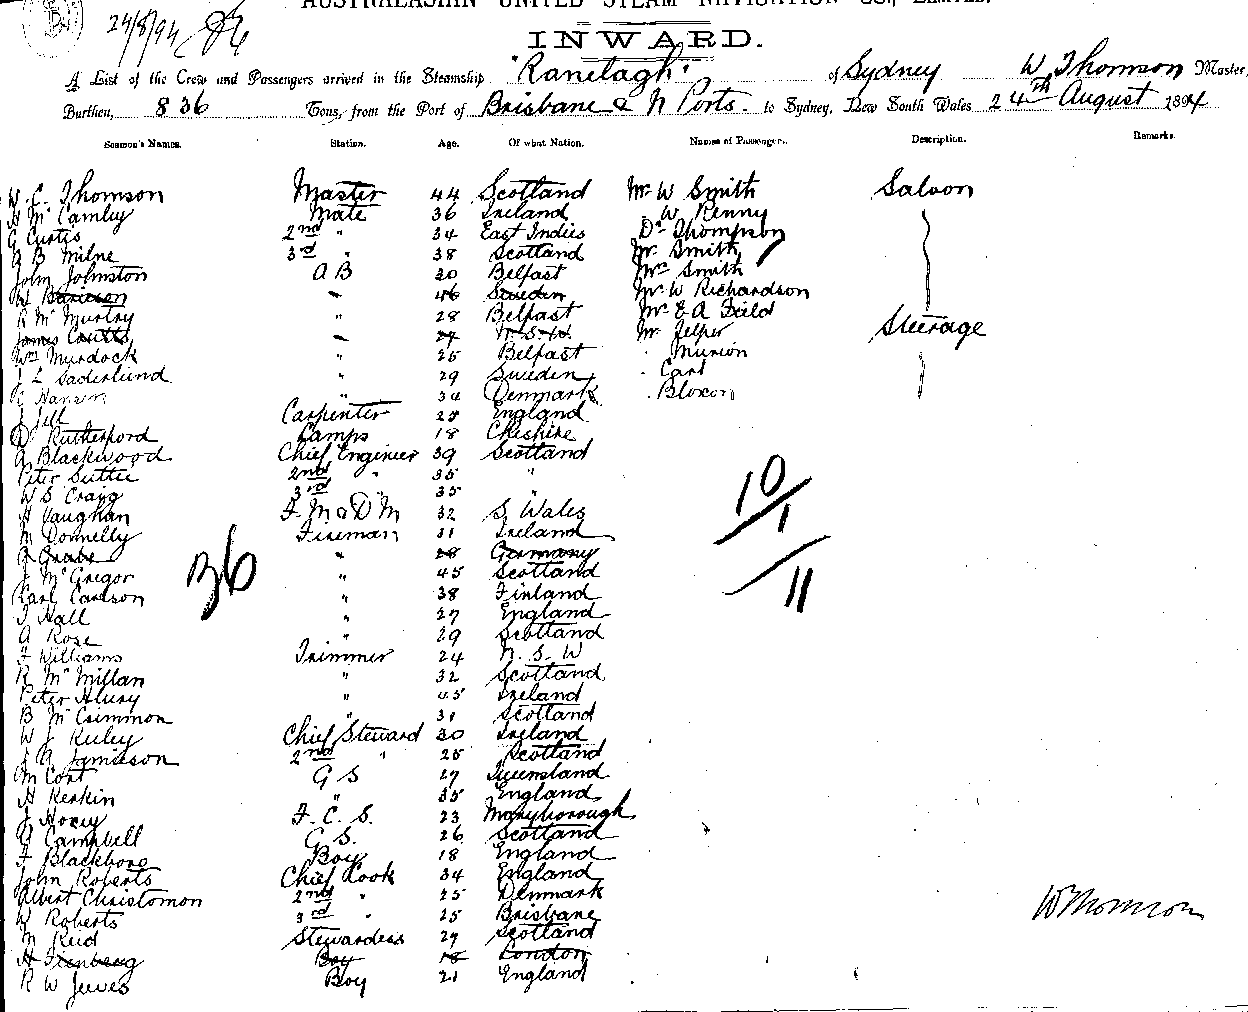 AUSTRALASIAN UNITED STEAM NAVIGATION CO., LIMITED.
24/8/94
INWARD.
A List of the Crew and Passengers arrived in the Steamship "Ranelagh" of Sydney W Thomson Master,
Burthen, 836 Tons, from the Port of Brisbane & N Ports. to Sydney, New South Wales 24th August 1894
Seamen's Names. Station. Age. Of what Nation. Names of Passengers. Description. Remarks.
W. C. Thomson Master 44 Scotland Mr W Smith Saloon
H McCamley Mate 36 Ireland W Renny
G Curtis 2nd " 34 East Indies Dr Thompson
A B Milne 3rd " 38 Scotland Mr Smith
John Johnston A B 30 Belfast Mrs Smith
W 46 Sweden Mr W Richardson
R McMurtry " 28 Belfast Mr E A Field
James Coutts 27 N. S. W. Mr Jelper Steerage
Wm Murdock " 25 Belfast Munion
J L Saderlund " 29 Sweden Carl
C Hansen " 34 Denmark Bloxon
J Jell Carpenter 25 England
D Rutherford Lamps 18 Cheshire
A Blackwood Chief Engineer 39 Scotland
Peter Suttie 2nd " 35 "
W S Craig 3rd " 35 "
H Vaughan F. M & D M 32 S. Wales
M Donnelly Fireman 31 Ireland
Grabe " 28 Germany
J McGregor " 45 Scotland
Karl Carlson " 38 Finland
J Hall " 27 England
A Rose " 29 Scotland
F Williams Trimmer 24 N. S. W
R McMillan " 32 Scotland
Peter " 45 Ireland
B McCrimmon " 31 Scotland
W J Ruley Chief Steward 30 Ireland
J A Jamieson 2nd " 25 Scotland
M Cort G S 27 Queensland
H Reskin " 35 England
J Hovey F. C. S. 23 Maryborough
A Campbell G S. 26 Scotland
F Blackbore Boy 18 England
John Roberts Chief Cook 34 England
Albert Christomon 2nd " 25 Denmark
W Roberts 3rd " 25 Brisbane
M Reid Stewardess 27 Scotland
H Boy 18 London
R W Jeeves Boy 21 England
36
10
1
11
W Thomson